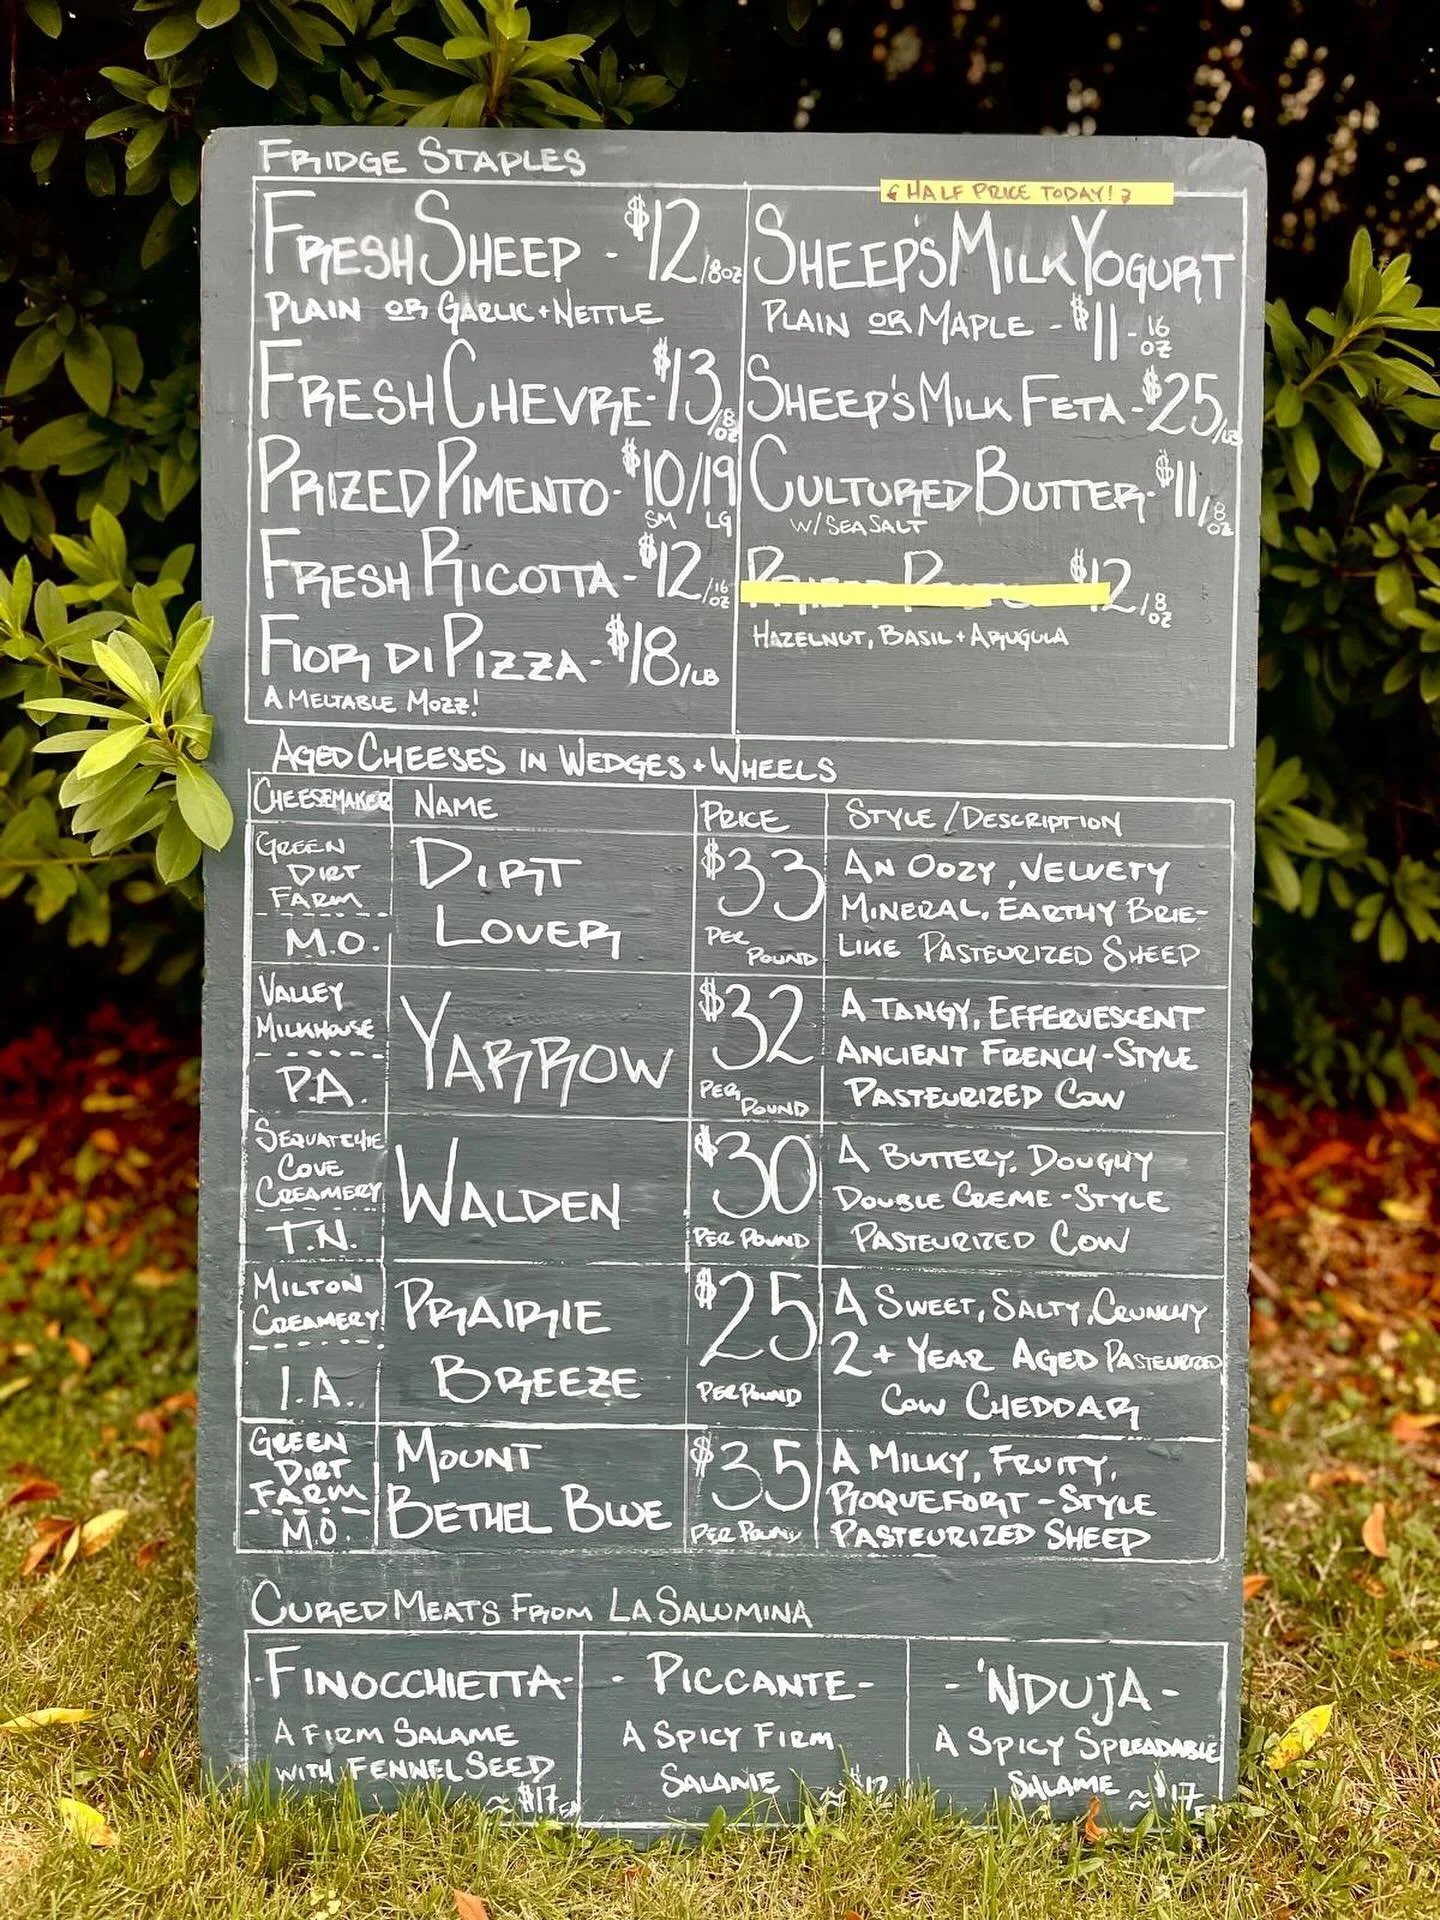 FRIDGE STAPLES
FRESH SHEEP - $12/8oz
PLAIN OR GARLIC + NETTLE
FRESH CHEVRE - $13/8 OZ
PRIZED PIMENTO - $10/19
SM LG
FRESH RICOTTA - $12/16 OZ
FIOR DI PIZZA - $18/LB
A MELTABLE MOZZ!
HALF PRICE TODAY!
SHEEP'S MILK YOGURT
PLAIN OR MAPLE - $11 - 16 OZ
SHEEP'S MILK FETA - $25/LB
CULTURED BUTTER - $11/8 OZ
W/ SEA SALT
$12/8 OZ
HAZELNUT, BASIL + ARUGULA
AGED CHEESES IN WEDGES + WHEELS
CHEESEMAKER NAME PRICE STYLE/DESCRIPTION
GREEN
DIRT
FARM
M.O.
DIRT
LOVER
$33
PER
POUND
AN OOZY, VELVETY
MINERAL, EARTHY BRIE-
LIKE PASTEURIZED SHEEP
VALLEY
MILKHOUSE
P.A.
YARROW
$32
PER
POUND
A TANGY, EFFERVESCENT
ANCIENT FRENCH-STYLE
PASTEURIZED COW
SEQUATCHIE
COVE
CREAMERY
T.N.
WALDEN
$30
PER POUND
A BUTTERY, DOUGHY
DOUBLE CREME-STYLE
PASTEURIZED COW
MILTON
CREAMERY
I.A.
PRAIRIE
BREEZE
$25
PER POUND
A SWEET, SALTY, CRUNCHY
2+ YEAR AGED PASTEURIZED
COW CHEDDAR
GREEN
DIRT
FARM
M.O.
MOUNT
BETHEL BLUE
$35
PER POUND
A MILKY, FRUITY,
ROQUEFORT-STYLE
PASTEURIZED SHEEP
CURED MEATS FROM LA SALUMINA
-FINOCCHIETTA-
A FIRM SALAME
WITH FENNEL SEED
≈ $17 EA
- PICCANTE -
A SPICY FIRM
SALAME ≈ $12
- 'NDUJA -
A SPICY SPREADABLE
SALAME ≈ $17